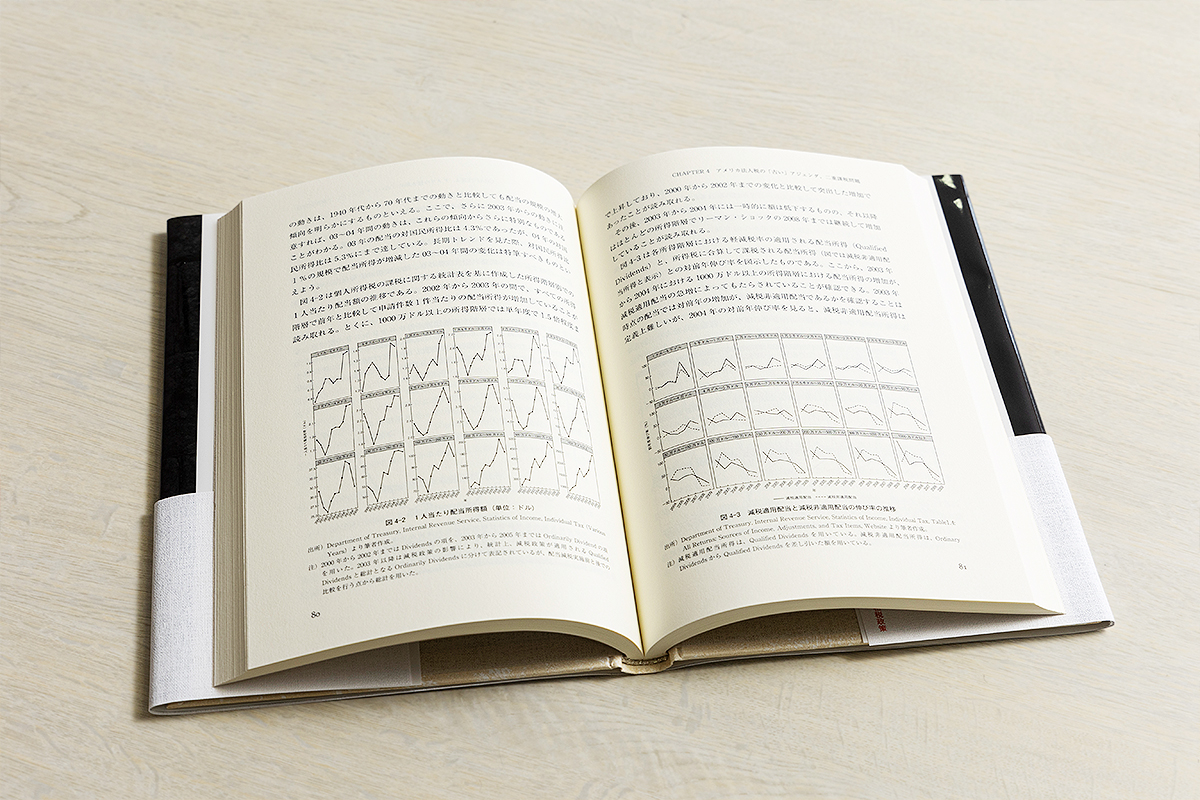 の動きは、1940年代から70年代までの動きと比較しても配当の規模の増大
傾向を明らかにするものといえる。ここで、さらに2003年からの動きに注
意すれば、03〜04年間の動きは、これらの傾向からさらに特別なものである
ことがわかる。03年の配当の対国民所得比は4.3%であったが、04年の対国
民所得比は5.3%にまで達している。長期トレンドを見た際、対国民所得比
1%の規模で配当所得が増減した03〜04年間の変化は特筆すべきものとい
えよう。
図4-2は個人所得税の課税に関する統計表を基に作成した所得階層別での
1人当たり配当額の推移である。2002年から2003年の間で、すべての所得
階層で前年と比較して申請件数1件当たりの配当所得が増加していることが
読み取れる。とくに、1000万ドル以上の所得階層では単年度で1.5倍程度ま
図4-2 1人当たり配当所得額（単位：ドル）
出所）Department of Treasury, Internal Revenue Service, Statistics of Income, Individual Tax (Various
Years) より筆者作成。
注）2000年から2002年まではDividendsの項を、2003年から2005年まではOrdinarily Dividendの項
を用いた。2003年以降は減税政策の影響により、統計上、減税政策が適用されるQualified
Dividendsと総計となるOrdinarily Dividendsに分けて表記されているが、
比較を行う点から総計を用いた。
80
CHAPTER 4 アメリカ法人税の「古い」アジェンダ、二重課税問題
で上昇しており、2000年から2002年までの変化と比較して突出した増加で
あったことが読み取れる。
その後、2003年から2004年には一時的に額は低下するものの、それ以降
はほとんどの所得階層でリーマン・ショックの2008年までは継続して増加
していることが読み取れる。
図4-3は各所得階層における軽減税率の適用される配当所得（Qualified
Dividends）と、所得税に合算して課税される配当所得（図では減税非適用配
当所得と表示）との対前年伸び率を図示したものである。ここから、2003年
から2004年における1000万ドル以上の所得階層における配当所得の増加は、
減税適用配当の急増によってもたらされていることが確認できる。2003年
時点の配当では対前年の増加が、減税非適用配当であるかを確認することは
定義上難しいが、2004年の対前年伸び率を見ると、減税非適用配当所得は
減税適用配当 減税非適用配当
図4-3 減税適用配当と減税非適用配当の伸び率の推移
出所）Department of Treasury, Internal Revenue Service, Statistics of Income, Individual Tax, Table1.A
All Returns: Sources of Income, Adjustments, and Tax Items, Website より筆者作成。
注）減税適用配当所得は、Qualified Dividendsを用いている。減税非適用配当所得は、Ordinary
DividendsからQualified Dividendsを差し引いた額を用いている。
81
税政策